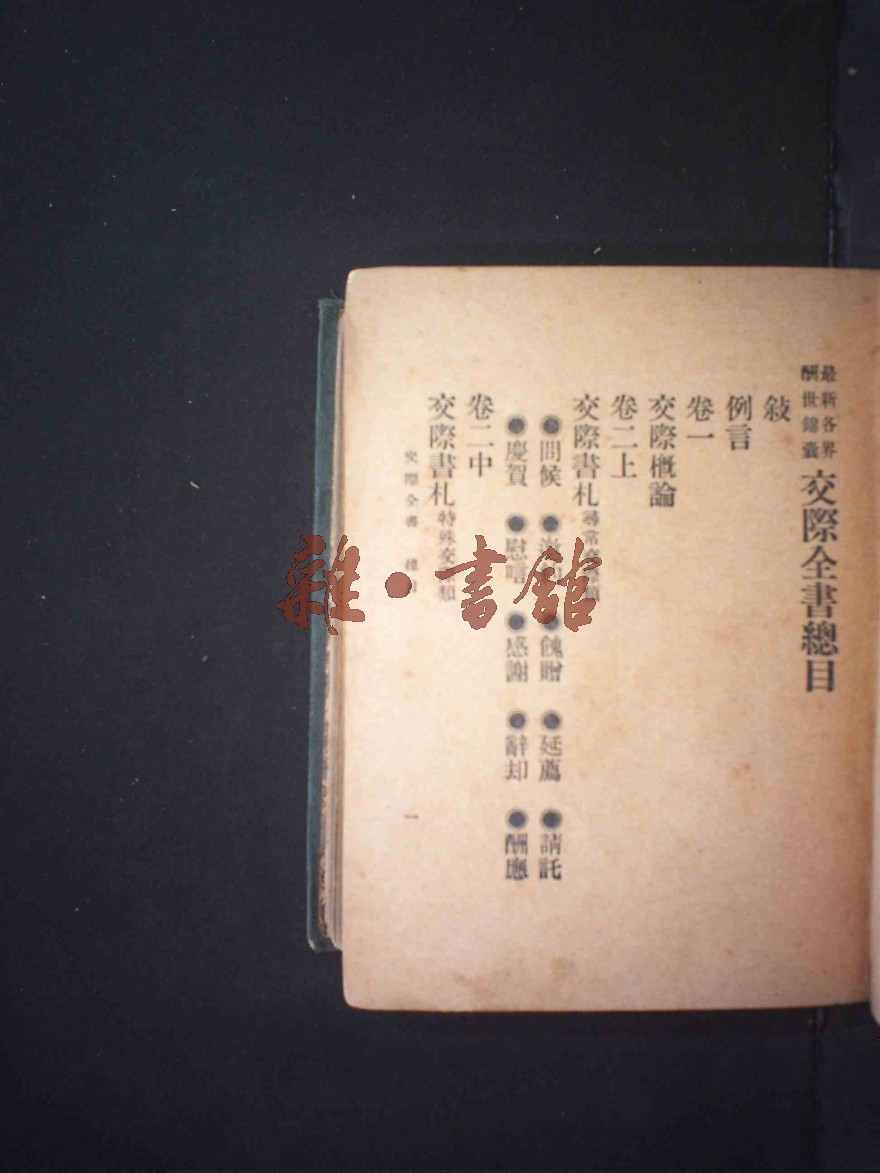 最新各界
酬世錦囊
交際全書總目
敍
例言
卷一
交際概論
卷二上
交際書札 尋常交際類
●問候 ● ●餽贈 ●延薦 ●請託
●慶賀 ●慰唁 ●感謝 ●辭却 ●酬應
卷二中
交際書札 特殊交際類
交際全書 總目 一
雜·書館